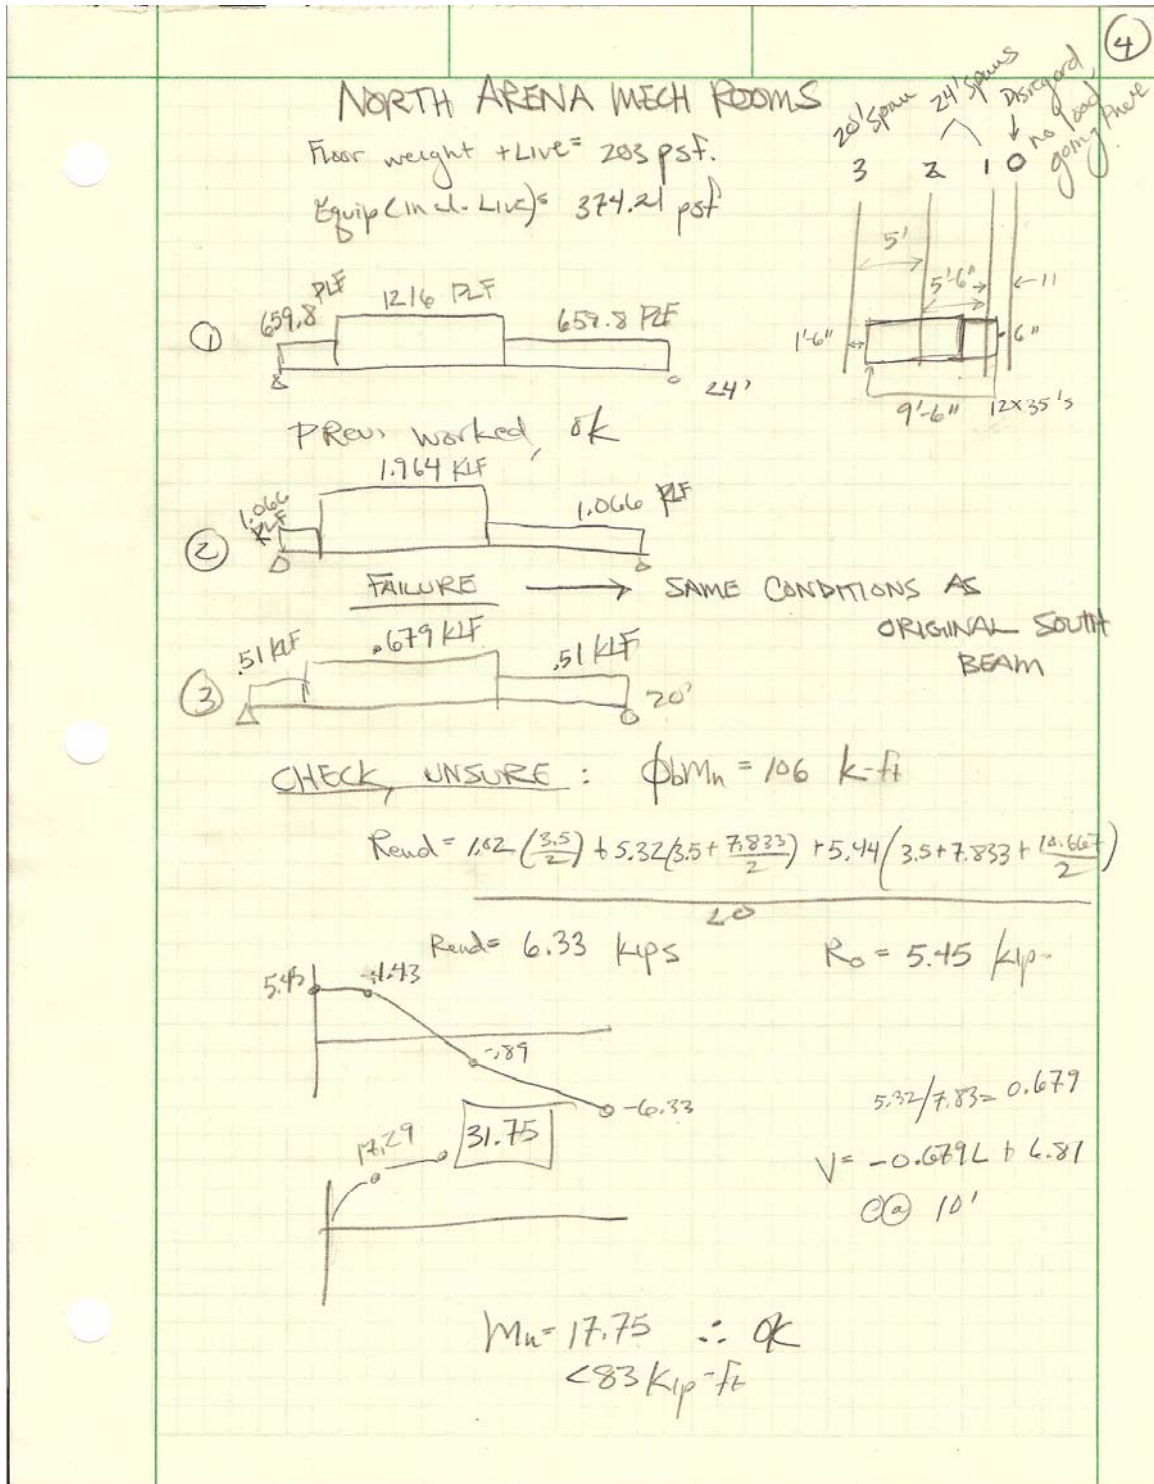 4
NORTH ARENA MECH ROOMS
Floor weight + Live = 203 psf.
Equip (Incl. Live) = 374.21 psf
20' Span
24' Spans
Disregard, no load going there
3 2 1 0
5'
5'-6"
11
1'-6"
6"
9'-6"
12x35's
1
659.8 PLF
1216 PLF
659.8 PLF
24'
PREV. worked, OK
2
1.066 KLF
1.964 KLF
1.066 KLF
FAILURE → SAME CONDITIONS AS
ORIGINAL SOUTH
BEAM
3
.51 KLF
.679 KLF
.51 KLF
20'
CHECK, UNSURE : ϕbMn = 106 k-ft
Rend = 1.02 (3.5/2) + 5.32 (3.5 + 7.833/2) + 5.44 (3.5 + 7.833 + 10.667/2)
20
Rend = 6.33 kips
Ro = 5.45 kip
5.45
4.43
-.89
-6.33
5.32/7.83 = 0.679
17.29
31.75
V = -0.679L + 6.81
@ 10'
Mu = 17.75 ∴ OK
<83 kip-ft